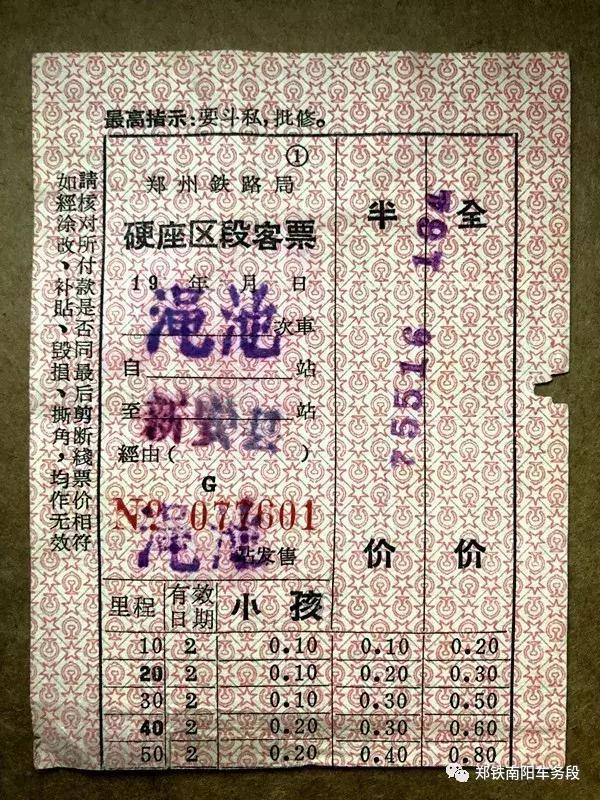 最高指示:要斗私,批修。
①
郑州鉄路局
硬座区段客票
19 年 月 日
渑池 次車
自 站
至 新安县 站
經由( )
G
№ 077601
渑池 站发售
半 价
全 价
184
75516
請核对所付款是否同最后剪断綫票价相符
如經涂改、补貼、毀損、撕角,均作无效
里程 有效日期 小孩
10 2 0.10 0.10 0.20
20 2 0.10 0.20 0.30
30 2 0.10 0.30 0.50
40 2 0.20 0.30 0.60
50 2 0.20 0.40 0.80
郑铁南阳车务段